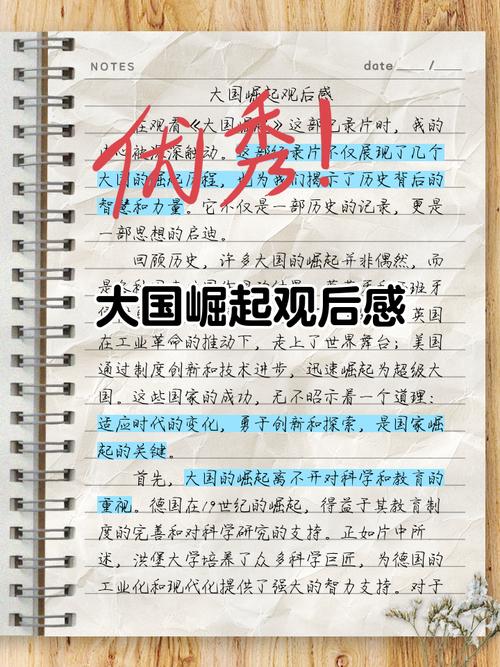 NOTES
date ____ / ____
大国崛起观后感
优秀!
在观看《大国崛起》这部纪录片时，我的
内心被深深触动。这部纪录片不仅展现了几个
大国的崛起历程，也为我们揭示了历史背后的
智慧和力量。它不仅是一部历史的记录，更是
一部思想的启迪。
回顾历史，许多大国的崛起并非偶然，而
是
大国崛起观后感
班牙
英国
在工业革命的推动下，走上了世界舞台；美国
通过制度创新和技术进步，迅速崛起为超级大
国。这些国家的成功，无不昭示着一个道理：
适应时代的变化，勇于创新和探索，是国家崛
起的关键。
首先，大国的崛起离不开对科学和教育的
重视。德国在19世纪的崛起，得益于其教育制
度的完善和对科学研究的支持。正如片中所
述，洪堡大学培养了众多科学巨匠，为德国的
工业化和现代化提供了强大的智力支持。对于